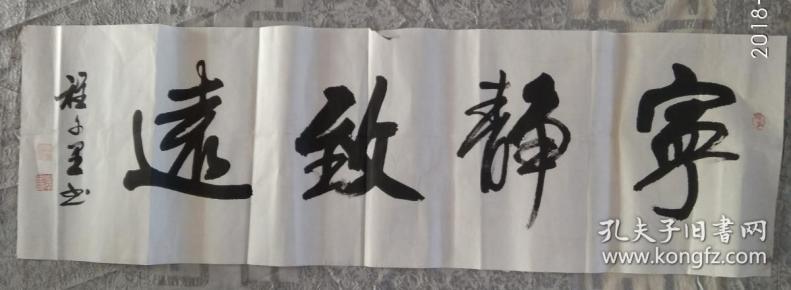 寧静致遠
程子里书
2018-
孔夫子旧书网
www.kongfz.com